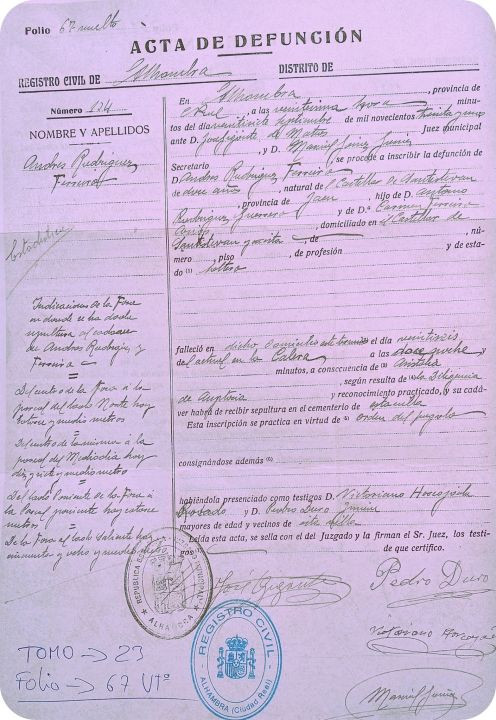 Folio 67 vuelto
ACTA DE DEFUNCIÓN
REGISTRO CIVIL DE Alhambra DISTRITO DE
Número 124
NOMBRE Y APELLIDOS
Andres Rodriguez
Ferreiro
Estadistica
Indicaciones de la Fosa
en donde se ha dado
sepultura al cadaver
de Andres Rodriguez y
Ferreiro
Del centro de la Fosa á la
pared del lado Norte hay
catorce y medio metros
Del centro de la misma á la
pared del Mediodia hay
diez y siete y medio metros
De lado Poniente de la Fosa á
la Pared poniente hay catorce
metros
De la Fosa al lado Saliente hay
cincuenta y ocho y medio metros
En Alhambra, provincia de
C. Real, a las veintiuna hora minu-
tos del día veintisiete Septiembre de mil novecientos treinta y
ante D. de Mateo Juez municipal
y D. Manuel
Secretario, se procede a inscribir la defunción de
D. Andres Rodriguez Ferreiro
de doce años, natural de Castellar de Santisteban
, provincia de Jaen, hijo de D. Antonio
Rodriguez Guerrero y de D.ª Carmen Ferreiro
, domiciliado en Castellar de
Santisteban, de, nú-
mero, piso, de profesión y de esta-
do (1) soltero
falleció en dicho domicilio el día veintiseis
del actual en la a las doce noche y
minutos, a consecuencia de Asistolia
, según resulta de la Diligencia
de Autopsia y reconocimiento practicado, y su cadá-
ver habrá de recibir sepultura en el cementerio de esta villa
Esta inscripción se practica en virtud de orden del Juzgado
consignándose además
habiéndola presenciado como testigos D. Victoriano
Rosado y D. Pedro Duro
mayores de edad y vecinos de esta villa
Leída esta acta, se sella con el del Juzgado y la firman el Sr. Juez, los testi-
gos de que certifico.
ALHAMBRA
Pedro Duro
Victoriano
Manuel
REGISTRO CIVIL
ALHAMBRA (Ciudad Real)
TOMO → 23
Folio → 67 Vtº